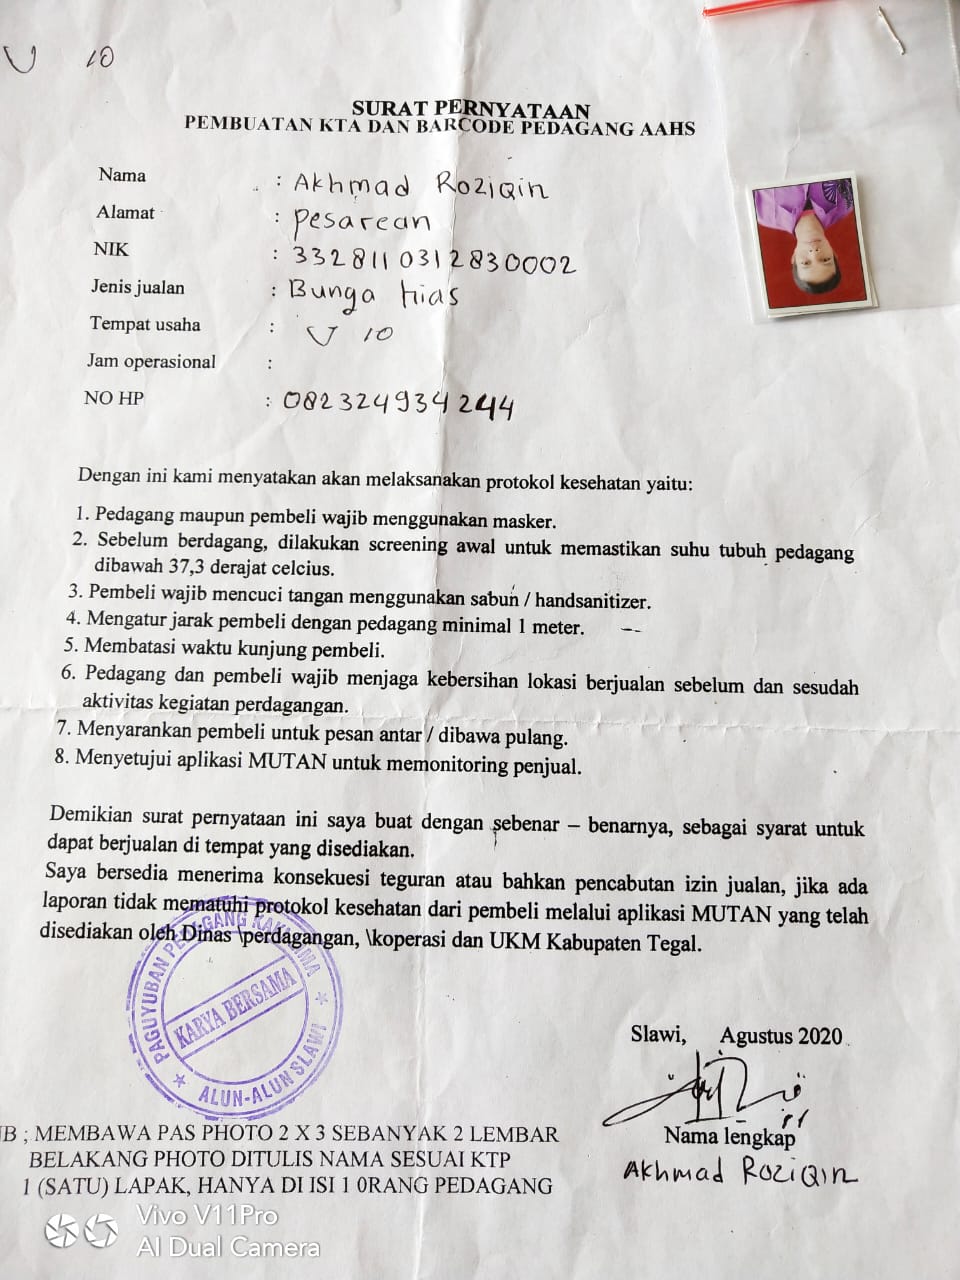 V 10
SURAT PERNYATAAN
PEMBUATAN KTA DAN BARCODE PEDAGANG AAHS
Nama : Akhmad Roziqin
Alamat : Pesarean
NIK : 3328110312830002
Jenis jualan : Bunga hias
Tempat usaha : V 10
Jam operasional :
NO HP : 082324934244
Dengan ini kami menyatakan akan melaksanakan protokol kesehatan yaitu:
1. Pedagang maupun pembeli wajib menggunakan masker.
2. Sebelum berdagang, dilakukan screening awal untuk memastikan suhu tubuh pedagang
dibawah 37,3 derajat celcius.
3. Pembeli wajib mencuci tangan menggunakan sabun / handsanitizer.
4. Mengatur jarak pembeli dengan pedagang minimal 1 meter.
5. Membatasi waktu kunjung pembeli.
6. Pedagang dan pembeli wajib menjaga kebersihan lokasi berjualan sebelum dan sesudah
aktivitas kegiatan perdagangan.
7. Menyarankan pembeli untuk pesan antar / dibawa pulang.
8. Menyetujui aplikasi MUTAN untuk memonitoring penjual.
Demikian surat pernyataan ini saya buat dengan sebenar – benarnya, sebagai syarat untuk
dapat berjualan di tempat yang disediakan.
Saya bersedia menerima konsekuesi teguran atau bahkan pencabutan izin jualan, jika ada
laporan tidak mematuhi protokol kesehatan dari pembeli melalui aplikasi MUTAN yang telah
disediakan oleh Dinas \perdagangan, \koperasi dan UKM Kabupaten Tegal.
PAGUYUBAN PEDAGANG KAKI LIMA
KARYA BERSAMA
ALUN-ALUN SLAWI
Slawi, Agustus 2020
Nama lengkap
Akhmad Roziqin
NB ; MEMBAWA PAS PHOTO 2 X 3 SEBANYAK 2 LEMBAR
BELAKANG PHOTO DITULIS NAMA SESUAI KTP
1 (SATU) LAPAK, HANYA DI ISI 1 0RANG PEDAGANG
Vivo V11Pro
AI Dual Camera